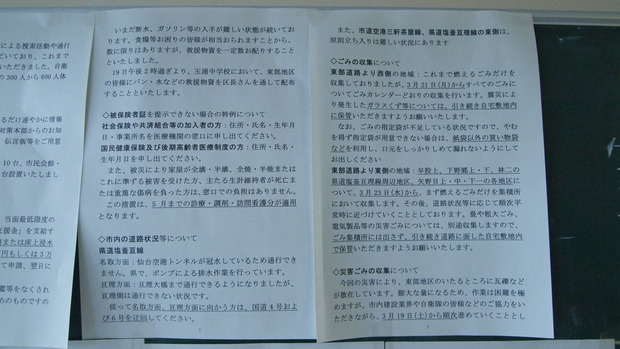 による捜索活動や通行
ておいり、これまで
いただきました。自衛
の300人から600人体
だけ速やかに情報
対策本部からのお知
伝言板等をご用意
10台、市民会館・
台設置いたしまし
当面最低限度の
支援金」を支給す
または床上浸水
円もしくは3万
て申請、翌日に
鑑等をなくされ
めのものですの
いまだ断水、ガソリン等の入手が難しい状態が続いてお
ります。食糧等お困りの皆様が相当おられますことから、
数に限りはありますが、救援物資を一定数お配りすること
といたしました。
19日午後2時過ぎより、玉浦中学校において、東部地区
の皆様にパン・水などの救援物資を区長さんを通して配布
することといたします。
◇被保険者証を提示できない場合の特例について
社会保険や共済組合等の加入者の方：住所・氏名・生年月
日・事業所名を医療機関の窓口に申し出てください。
国民健康保険及び後期高齢者医療制度の方：住所・氏名・
生年月日を申し出てください。
また、被災により家屋が全壊・半壊、全焼・半焼または
これに準ずる被害を受けた方、主たる生計維持者が死亡ま
たは重篤な傷病を負った方は、窓口での負担はありません。
この措置は、5月までの診療・調剤・訪問看護分が適用
となります。
◇市内の道路状況等について
県道塩釜亘線
名取方面：仙台空港トンネルが冠水しているため通行でき
ません。県で、ポンプによる排水作業を行っています。
亘理方面：亘理大橋まで通行できるようになりましたが、
亘理側は通行できない状況です。
従って名取方面、亘理方面に向かう方は、国道4号およ
び6号を迂回してください。
また、市道空港三軒茶屋線、県道塩釜亘理線の東側は、
原則立ち入りは難しい状況にあります
◇ごみの収集について
東部道路より西側の地域：これまで燃えるごみだけを収
集しておりましたが、3月21日(月)からすべてのごみに
ついてごみカレンダーどおりの収集を行います。震災によ
り発生したガラスくず等については、引き続き自宅敷地内
に保管いただきますようお願いします。
なお、ごみの指定袋が不足している状況ですので、やむ
を得ず指定袋が用意できない場合は、紙袋以外の買い物袋
などを利用し、口元をしっかりしめて漏れないようにして
お出しください
東部道路より東側の地域：早股上、下野郷上・下、林二の
県道塩釜亘理線周辺地区、矢野目上・中・下一の各地区に
ついて、3月23日(水)から、まず燃えるごみだけを集積所
において収集します。その後、道路状況等に応じて順次平
常時に近づけていくこととしております。畳や粗大ごみ、
電気製品等の災害ごみについては、別途収集しますので、
ごみ集積所には出さず、引き続き道路に面した自宅敷地内
で保管いただきますようお願いします。
◇災害ごみの収集について
今回の災害により、東部地区のいたるところに瓦礫など
が散在しています。膨大な量になるため、作業は困難を極
めますが、市内建設業界や自衛隊の皆様などのご協力をい
ただきながら、3月19日(土)から順次進めていくこととし